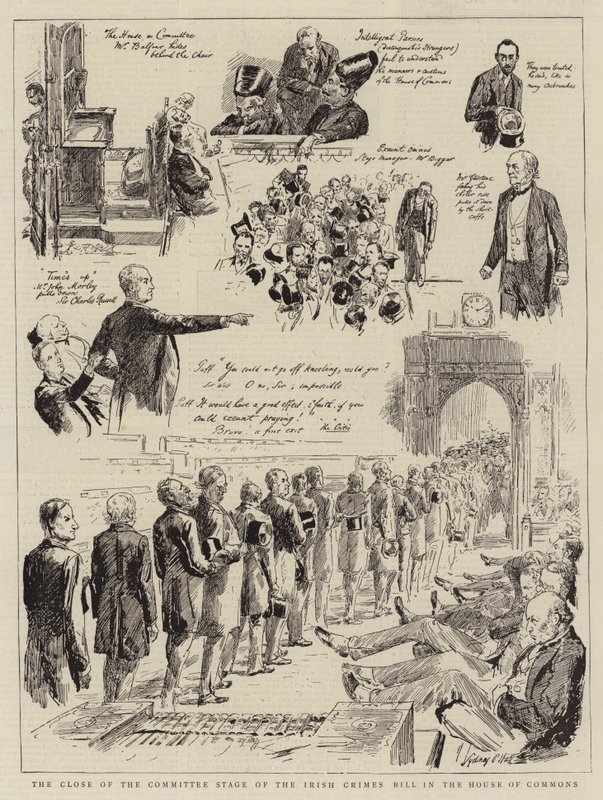 The House in Committee
Mr. Balfour hides
behind the Chair
Intelligent Parsees
(Distinguished Strangers)
fail to understand
the manners & customs
of the House of Commons
They were treated,
he said, like so
many cockroaches
Exeunt Omnes
Stage Manager - Mr Biggar
Mr Gladstone
pulls it down
by the shirt
cuffs
"Time's up"
Mr. John Morley
pulls down
Sir Charles Russell
Puff "You could not go off kneeling, could you?
Sir Walt O no, Sir; impossible
Puff It would have a good effect, i'faith, if you
could exeunt praying!"
Bravo. a fine exit The Critic
Sydney P. Hall
THE CLOSE OF THE COMMITTEE STAGE OF THE IRISH CRIMES BILL IN THE HOUSE OF COMMONS